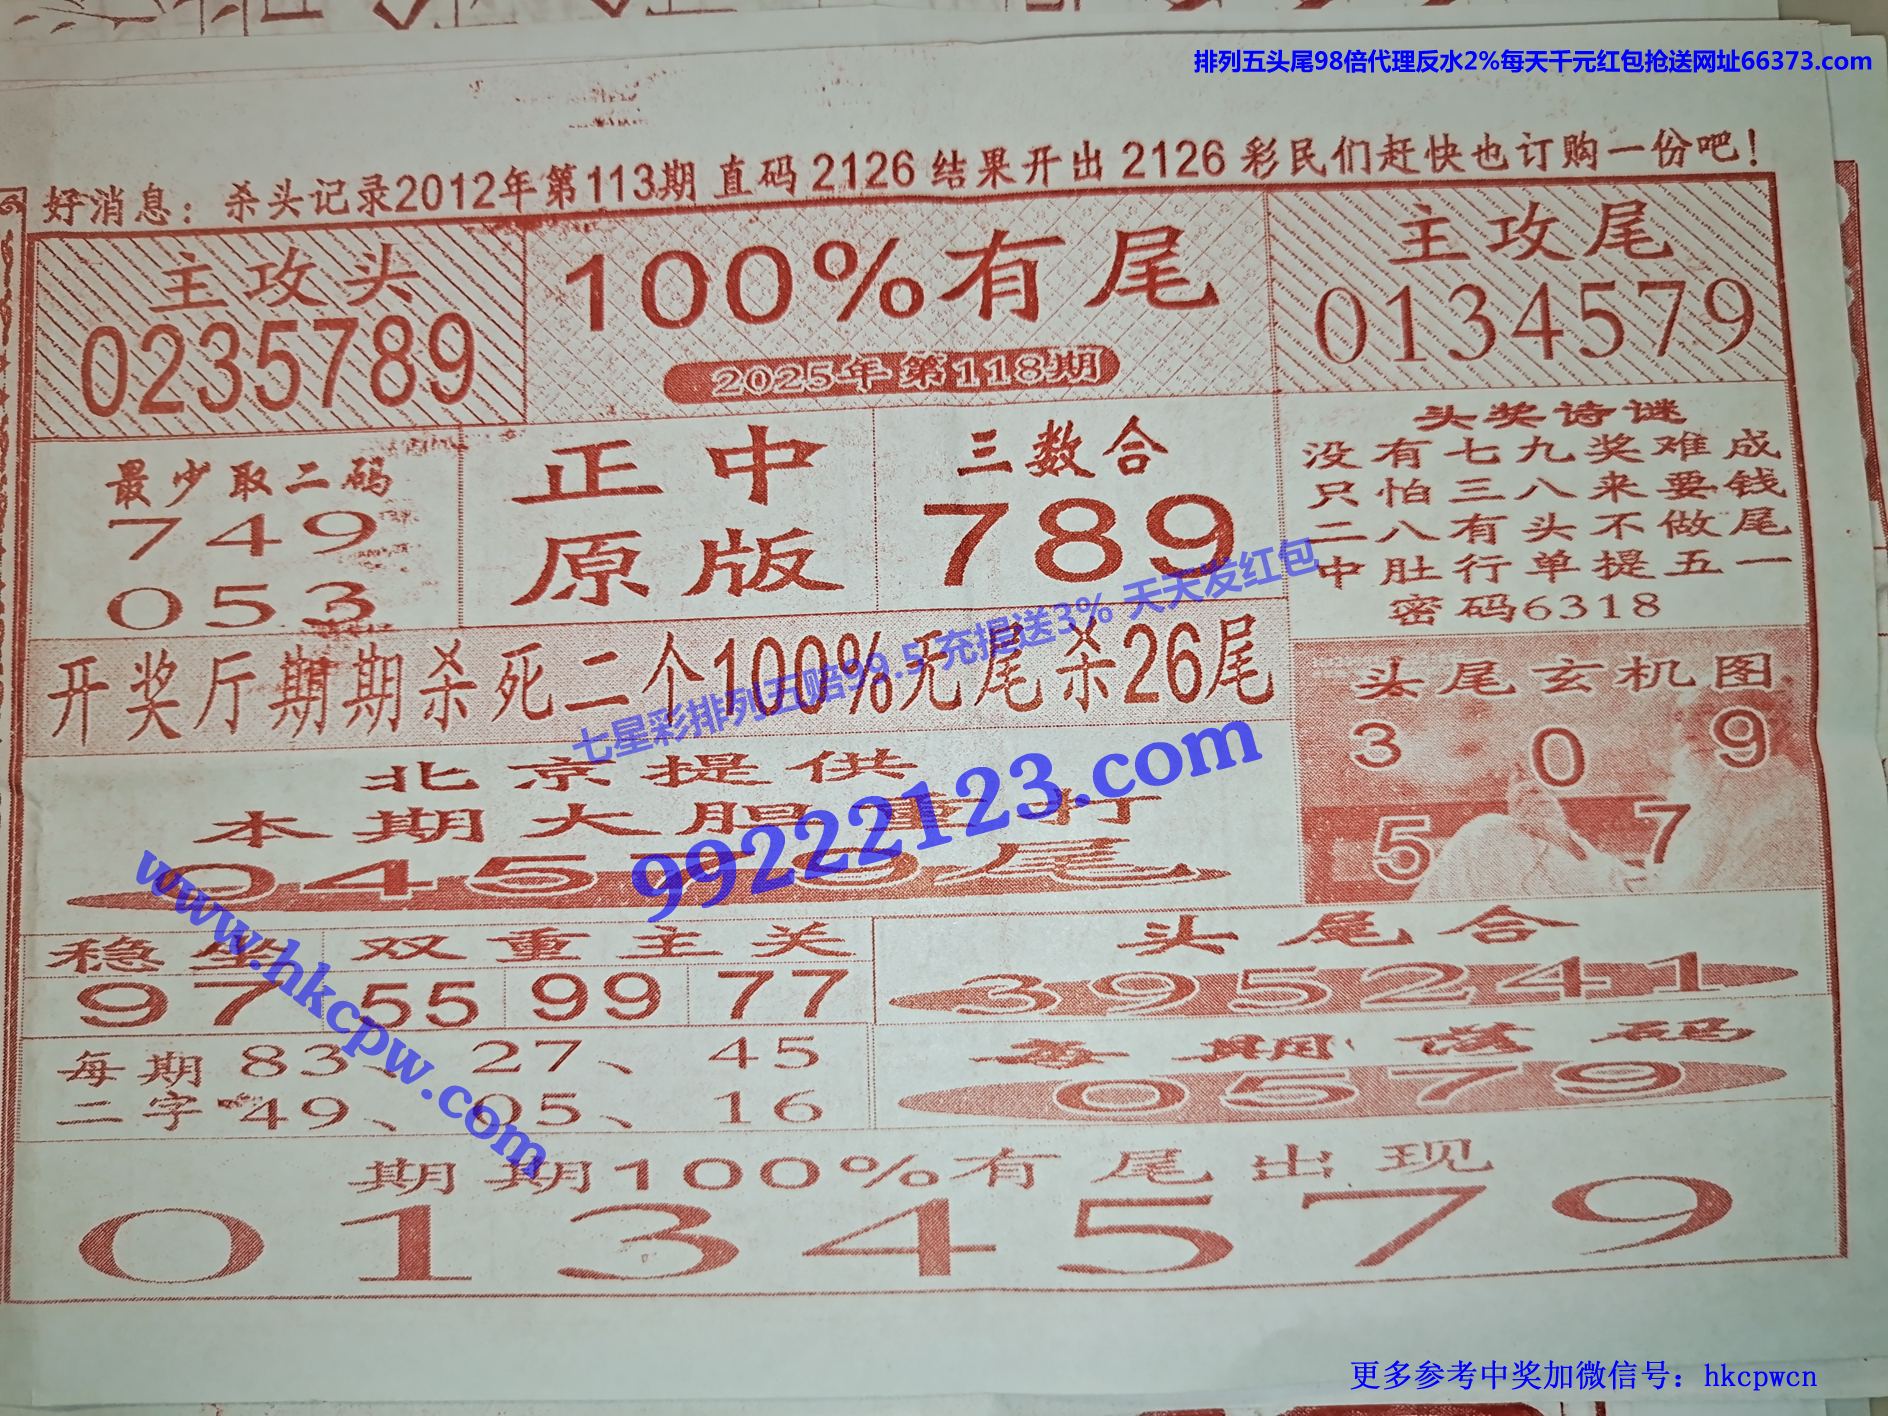 排列五头尾98倍代理反水2%每天千元红包抢送网址66373.com
好消息：杀头记录2012年第113期 直码 2126 结果开出 2126 彩民们赶快也订购一份吧！
主攻头
0235789
100%有尾
2025年第118期
主攻尾
0134579
最少取二码
749
053
正中
原版
三数合
789
头奖诗谜
没有七九奖难成
只怕三八来要钱
二八有头不做尾
中肚行单提五一
密码6318
开奖厅期期杀死二个100%无尾杀26尾
七星彩排列五赔99.5 充提送3% 天天发红包
99222123.com
头尾玄机图
3 0 9
5 7
北京提供
本期大胆重打
045 9尾
www.hkcpw.com
稳坐
97
双重主关
55 99 77
头尾合
395241
每期
二字
83、27、45
49、05、16
每期落码
0579
期期100%有尾出现
0134579
更多参考中奖加微信号：hkcpwcn